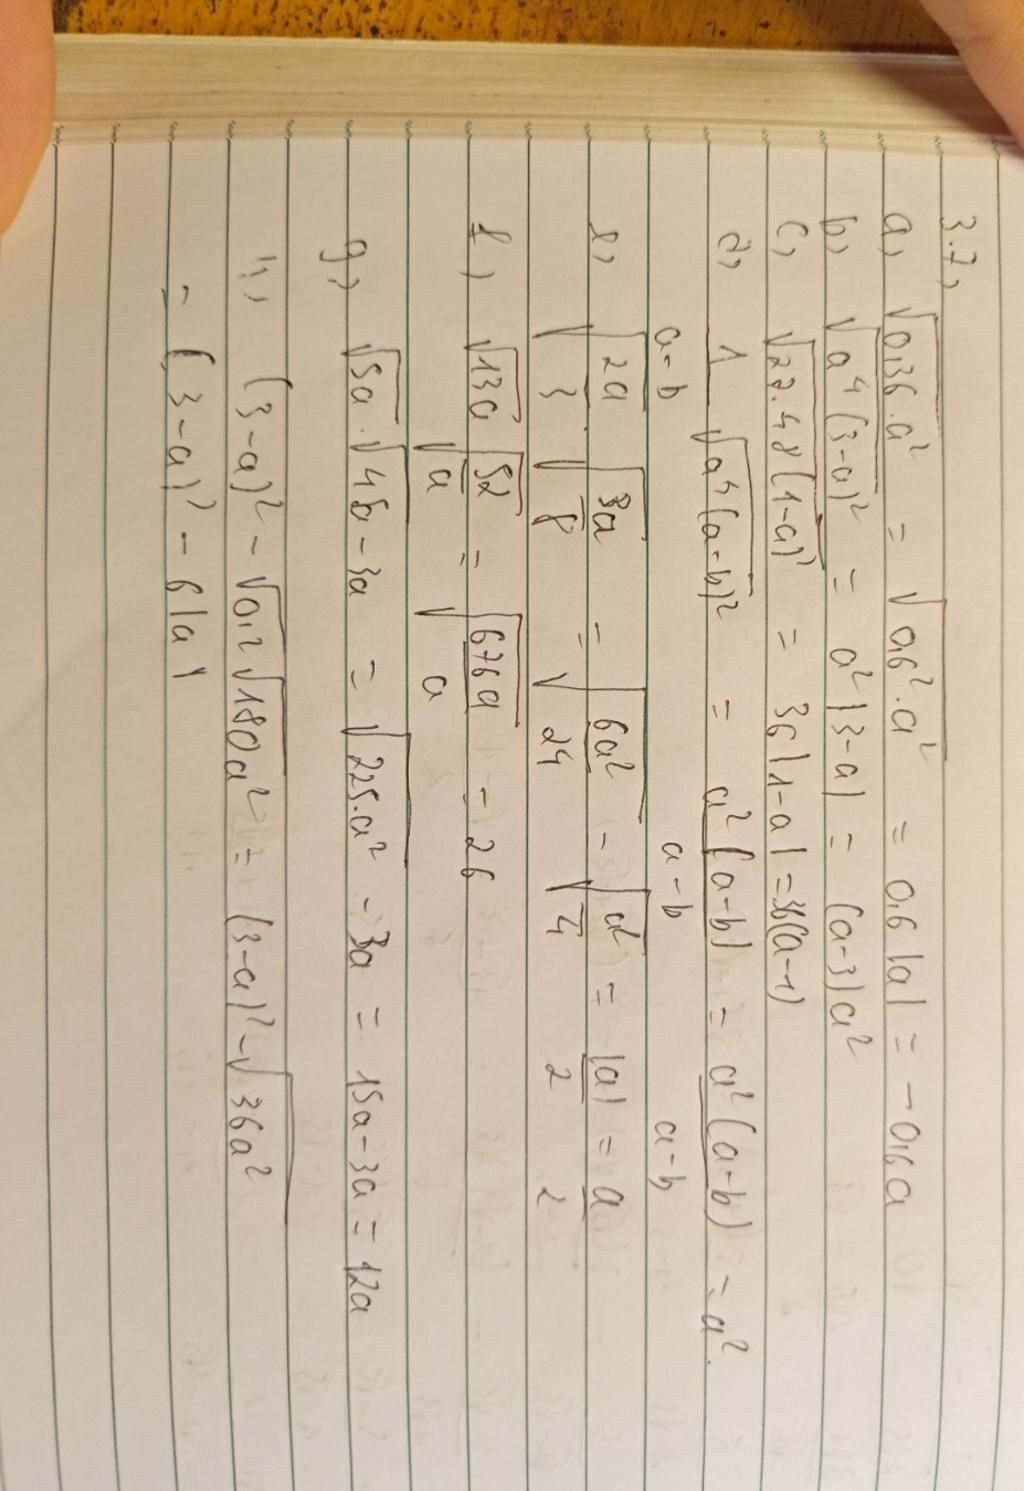 3.7,
a, √0,36.a² = √0,6².a² = 0,6 |a| = -0,6a
b, √a⁴(3-a)² = a²|3-a| = (a-3)a²
c, √27.48(1-a)² = 36|1-a| = 36(a-1)
d, 1/(a-b) √a⁴(a-b)² = a²(a-b)/(a-b) = a²(a-b)/(a-b) = a².
e, √(2a/3) . √(3a/8) = √(6a²/24) = √(a²/4) = |a|/2 = a/2
f, √13a √(52/a) = √(676a/a) = 26
g, √5a . √45a - 3a = √225.a² - 3a = 15a - 3a = 12a
h, (3-a)² - √0,2 √180a² = (3-a)² - √36a²
= (3-a)² - 6|a|